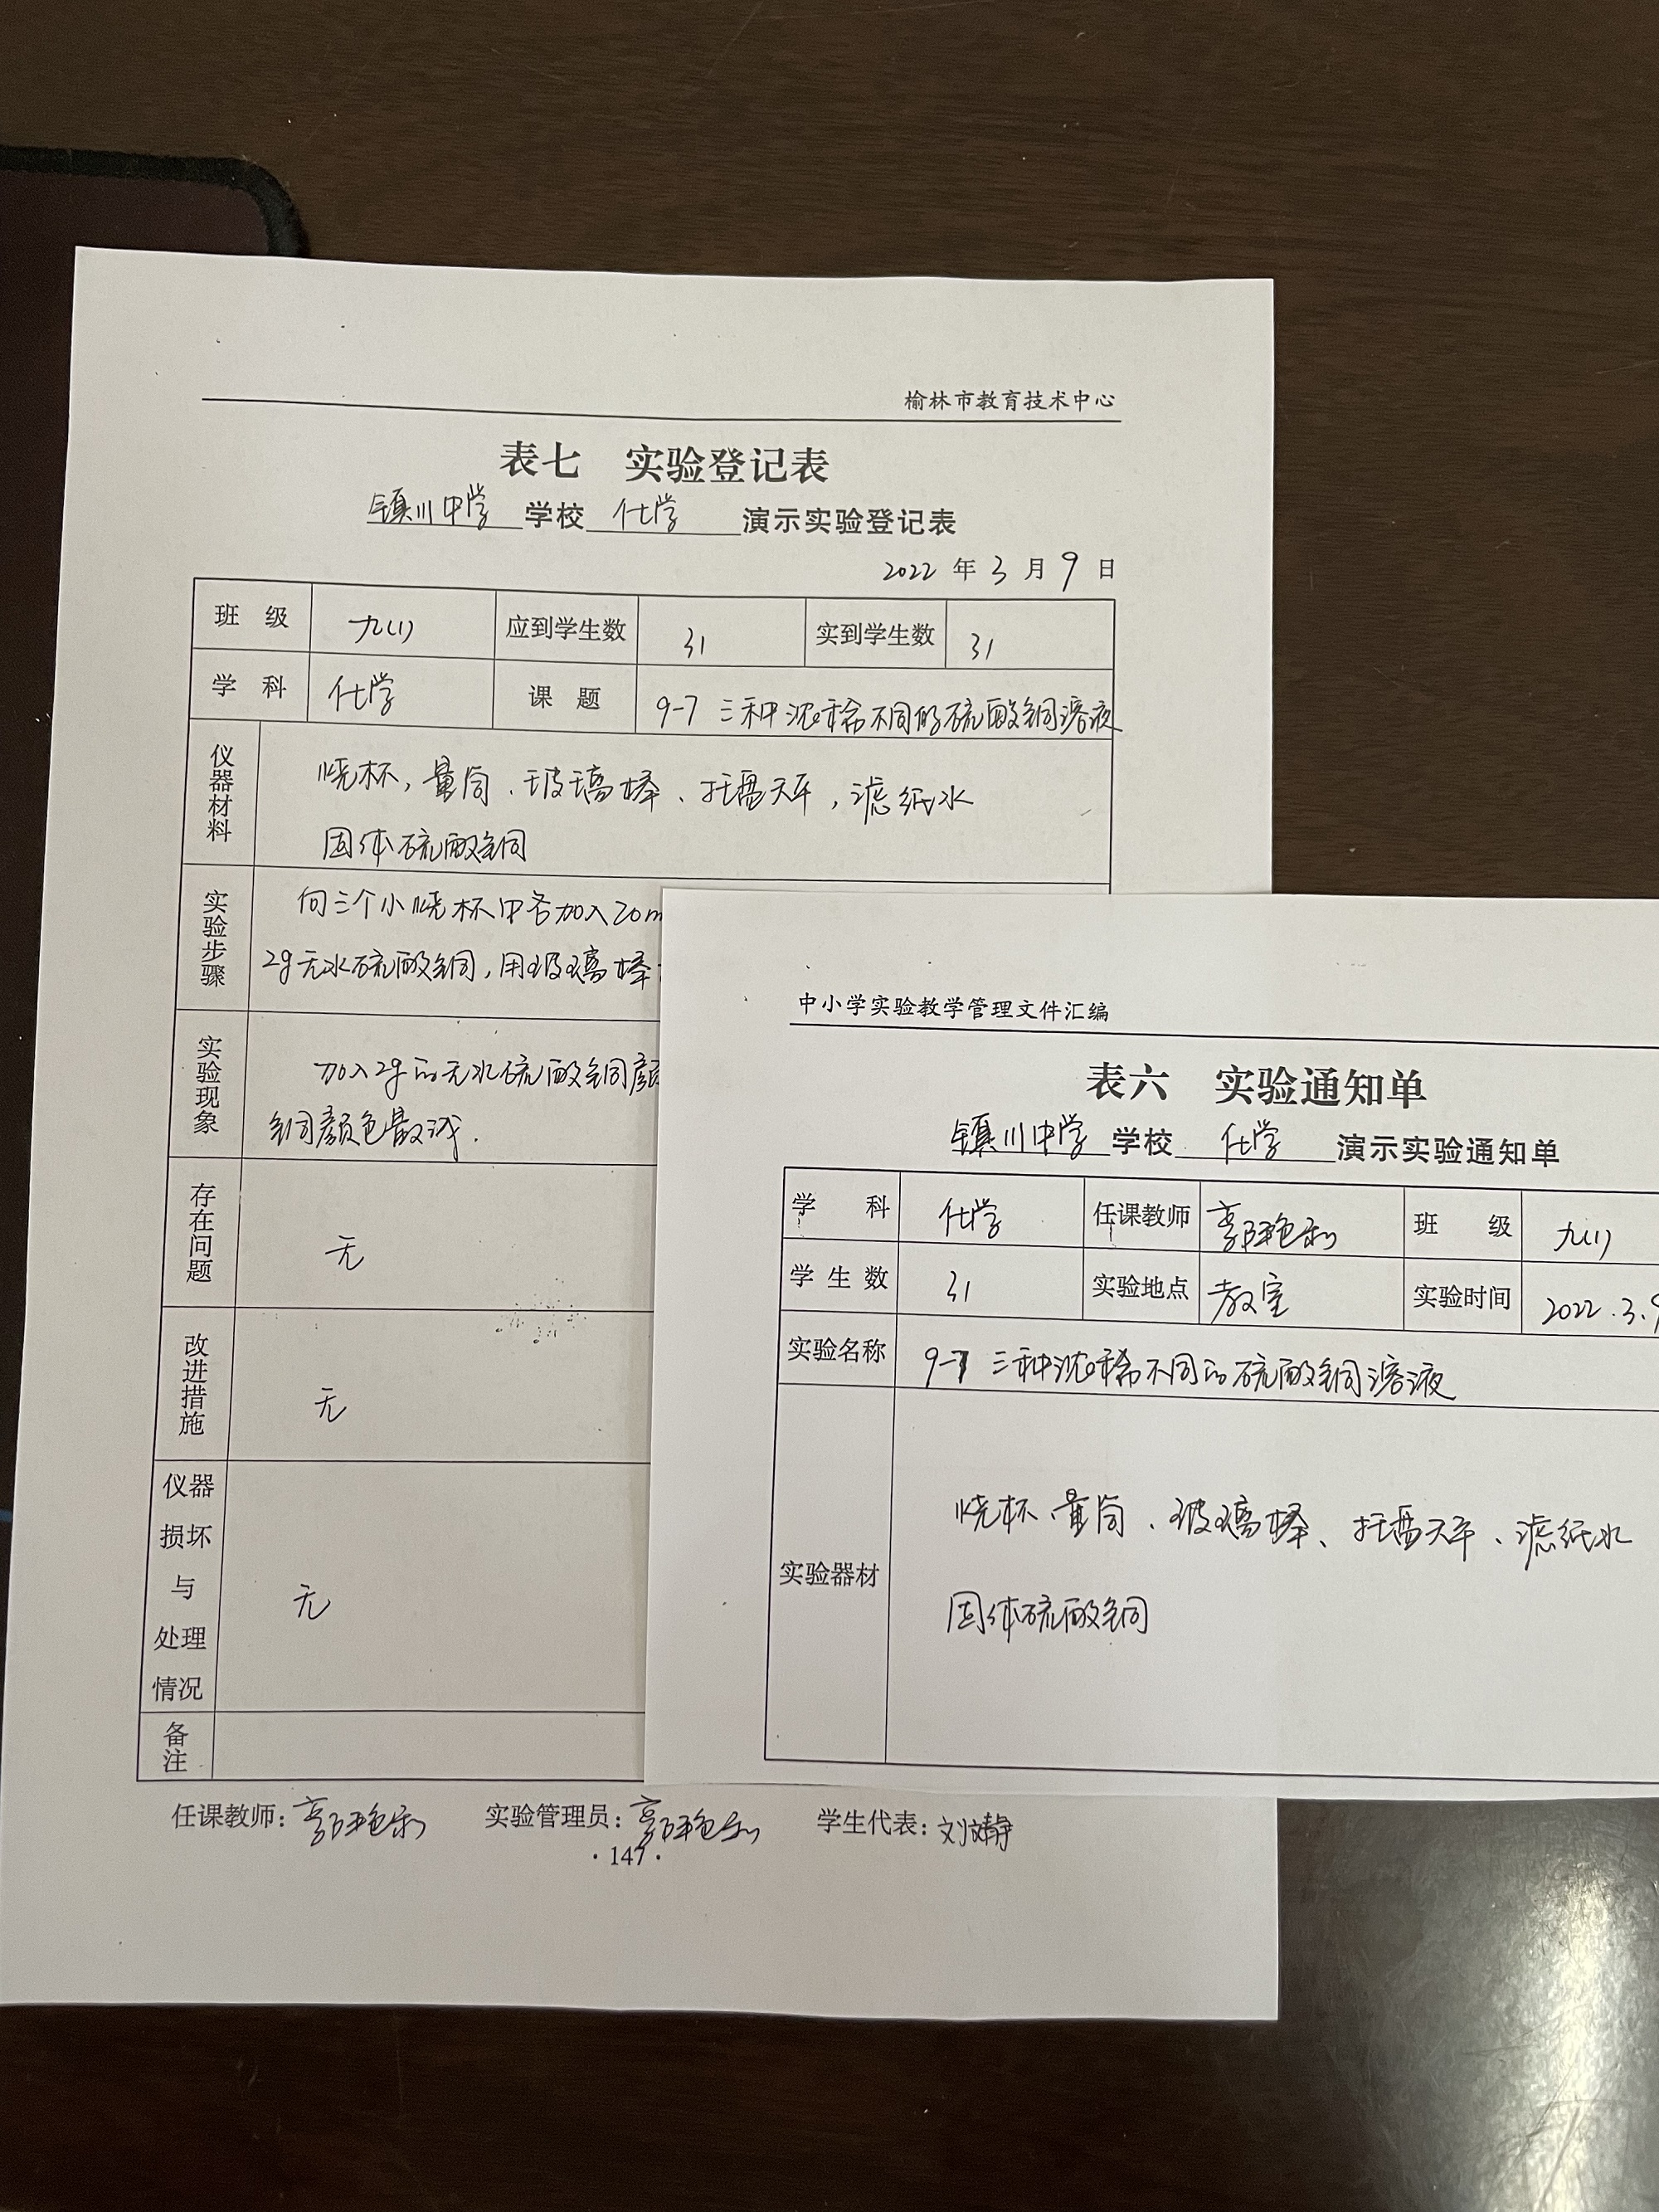 榆林市教育技术中心
表七 实验登记表
镇川中学 学校 化学 演示实验登记表
2022 年 3 月 9 日
班 级 九(1) 应到学生数 31 实到学生数 31
学 科 化学 课 题 9-7 三种浓稀不同的硫酸铜溶液
仪器材料 烧杯，量筒、玻璃棒、托盘天平，滤纸水
固体硫酸铜
实验步骤 向三个小烧杯中各加入20m
2g无水硫酸铜，用玻璃棒
实验现象 加入2g的无水硫酸铜颜
铜颜色最浅.
存在问题 无
改进措施 无
仪器损坏与处理情况 无
备注
任课教师： 实验管理员： 学生代表：刘文静
·147·
中小学实验教学管理文件汇编
表六 实验通知单
镇川中学 学校 化学 演示实验通知单
学 科 化学 任课教师 班 级 九(1)
学生数 31 实验地点 教室 实验时间 2022.3.9
实验名称 9-7 三种浓稀不同的硫酸铜溶液
实验器材 烧杯、量筒、玻璃棒、托盘天平、滤纸水
固体硫酸铜